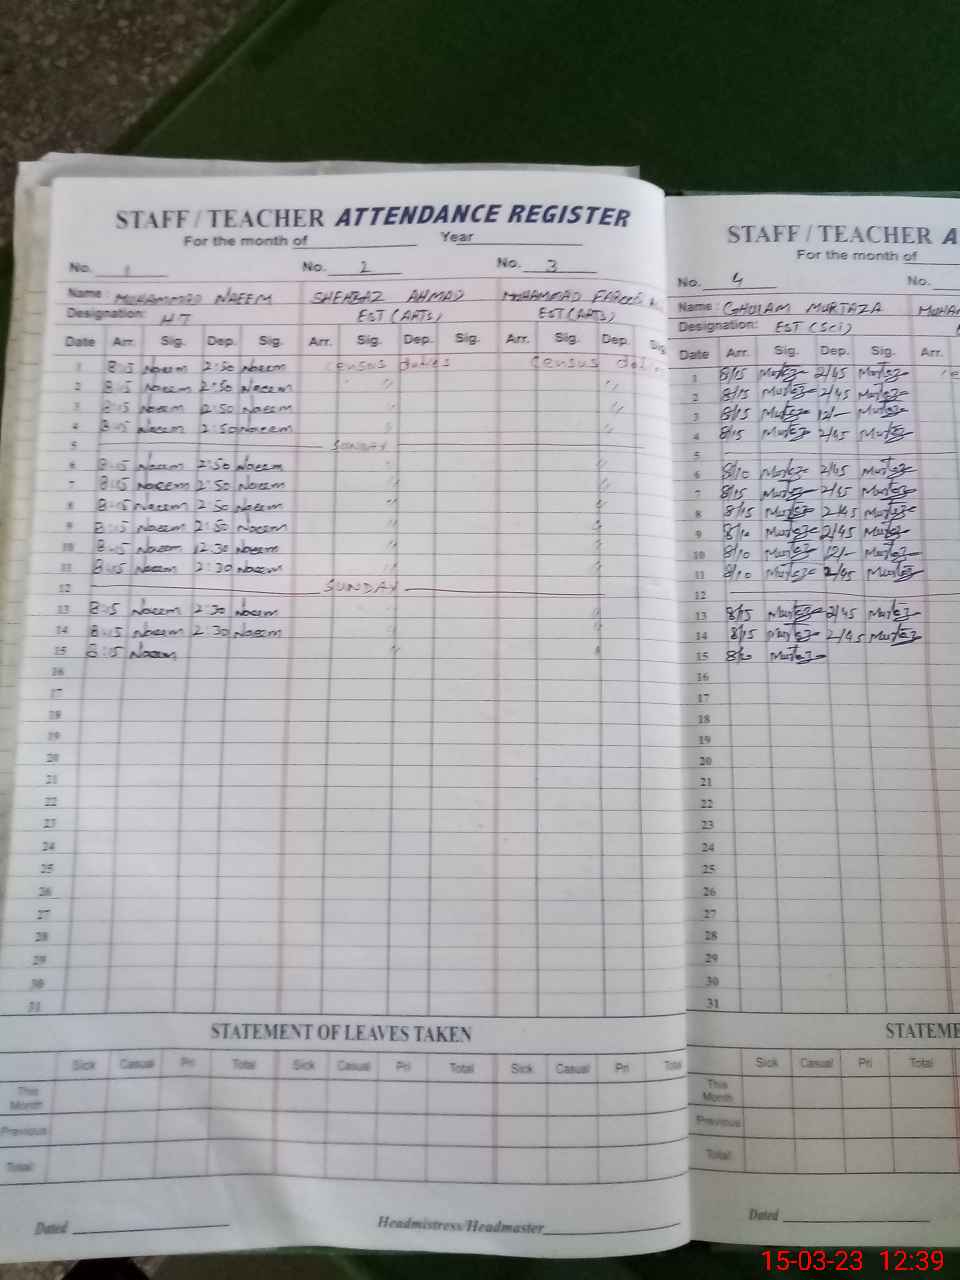 STAFF / TEACHER ATTENDANCE REGISTER
For the month of Year
No. 1 No. 2 No. 3
Name: MUHAMMAD NAEEM SHEHBAZ AHMAD MUHAMMAD
Designation: HT EST (ARTS) EST (ARTS)
Date Arr. Sig. Dep. Sig. Arr. Sig. Dep. Sig. Arr. Sig. Dep. Sig
1 8:15 Naeem 2:50 Naeem Census duties Census
2 8:15 Naeem 2:50 Naeem " " "
3 8:15 Naeem 2:50 Naeem " "
4 8:15 Naeem 2:50 Naeem " "
5 SUNDAY
6 8:15 Naeem 2:50 Naeem " "
7 8:15 Naeem 2:50 Naeem " "
8 8:15 Naeem 2:50 Naeem " "
9 8:15 Naeem 2:50 Naeem " "
10 8:15 Naeem 12:30 Naeem " "
11 8:15 Naeem 2:30 Naeem " "
12 SUNDAY
13 8:15 Naeem 2:30 Naeem " "
14 8:15 Naeem 2:30 Naeem " "
15 8:15 Naeem " "
16
17
18
19
20
21
22
23
24
25
26
27
28
29
30
31
STATEMENT OF LEAVES TAKEN
Sick Casual Pri Total Sick Casual Pri Total Sick Casual Pri Total
This Month
Previous
Total
Dated Headmistress/Headmaster
STAFF / TEACHER A
For the month of
No. 4 No.
Name: GHULAM MURTAZA MUHAM
Designation: EST (Sci)
Date Arr. Sig. Dep. Sig. Arr.
1 8/15 Murtaza 2/45 Murtaza
2 8/15 Murtaza 2/45 Murtaza
3 8/15 Murtaza 12/- Murtaza
4 8/15 Murtaza 2/45 Murtaza
5
6 8/10 Murtaza 2/45 Murtaza
7 8/15 Murtaza 2/45 Murtaza
8 8/15 Murtaza 2/45 Murtaza
9 8/10 Murtaza 2/45 Murtaza
10 8/10 Murtaza 12/- Murtaza
11 8/10 Murtaza 2/45 Murtaza
12
13 8/15 Murtaza 2/45 Murtaza
14 8/15 Murtaza 2/45 Murtaza
15 Murtaza
16
17
18
19
20
21
22
23
24
25
26
27
28
29
30
31
STATEME
Sick Casual Pri Total
This Month
Previous
Total
Dated
15-03-23 12:39